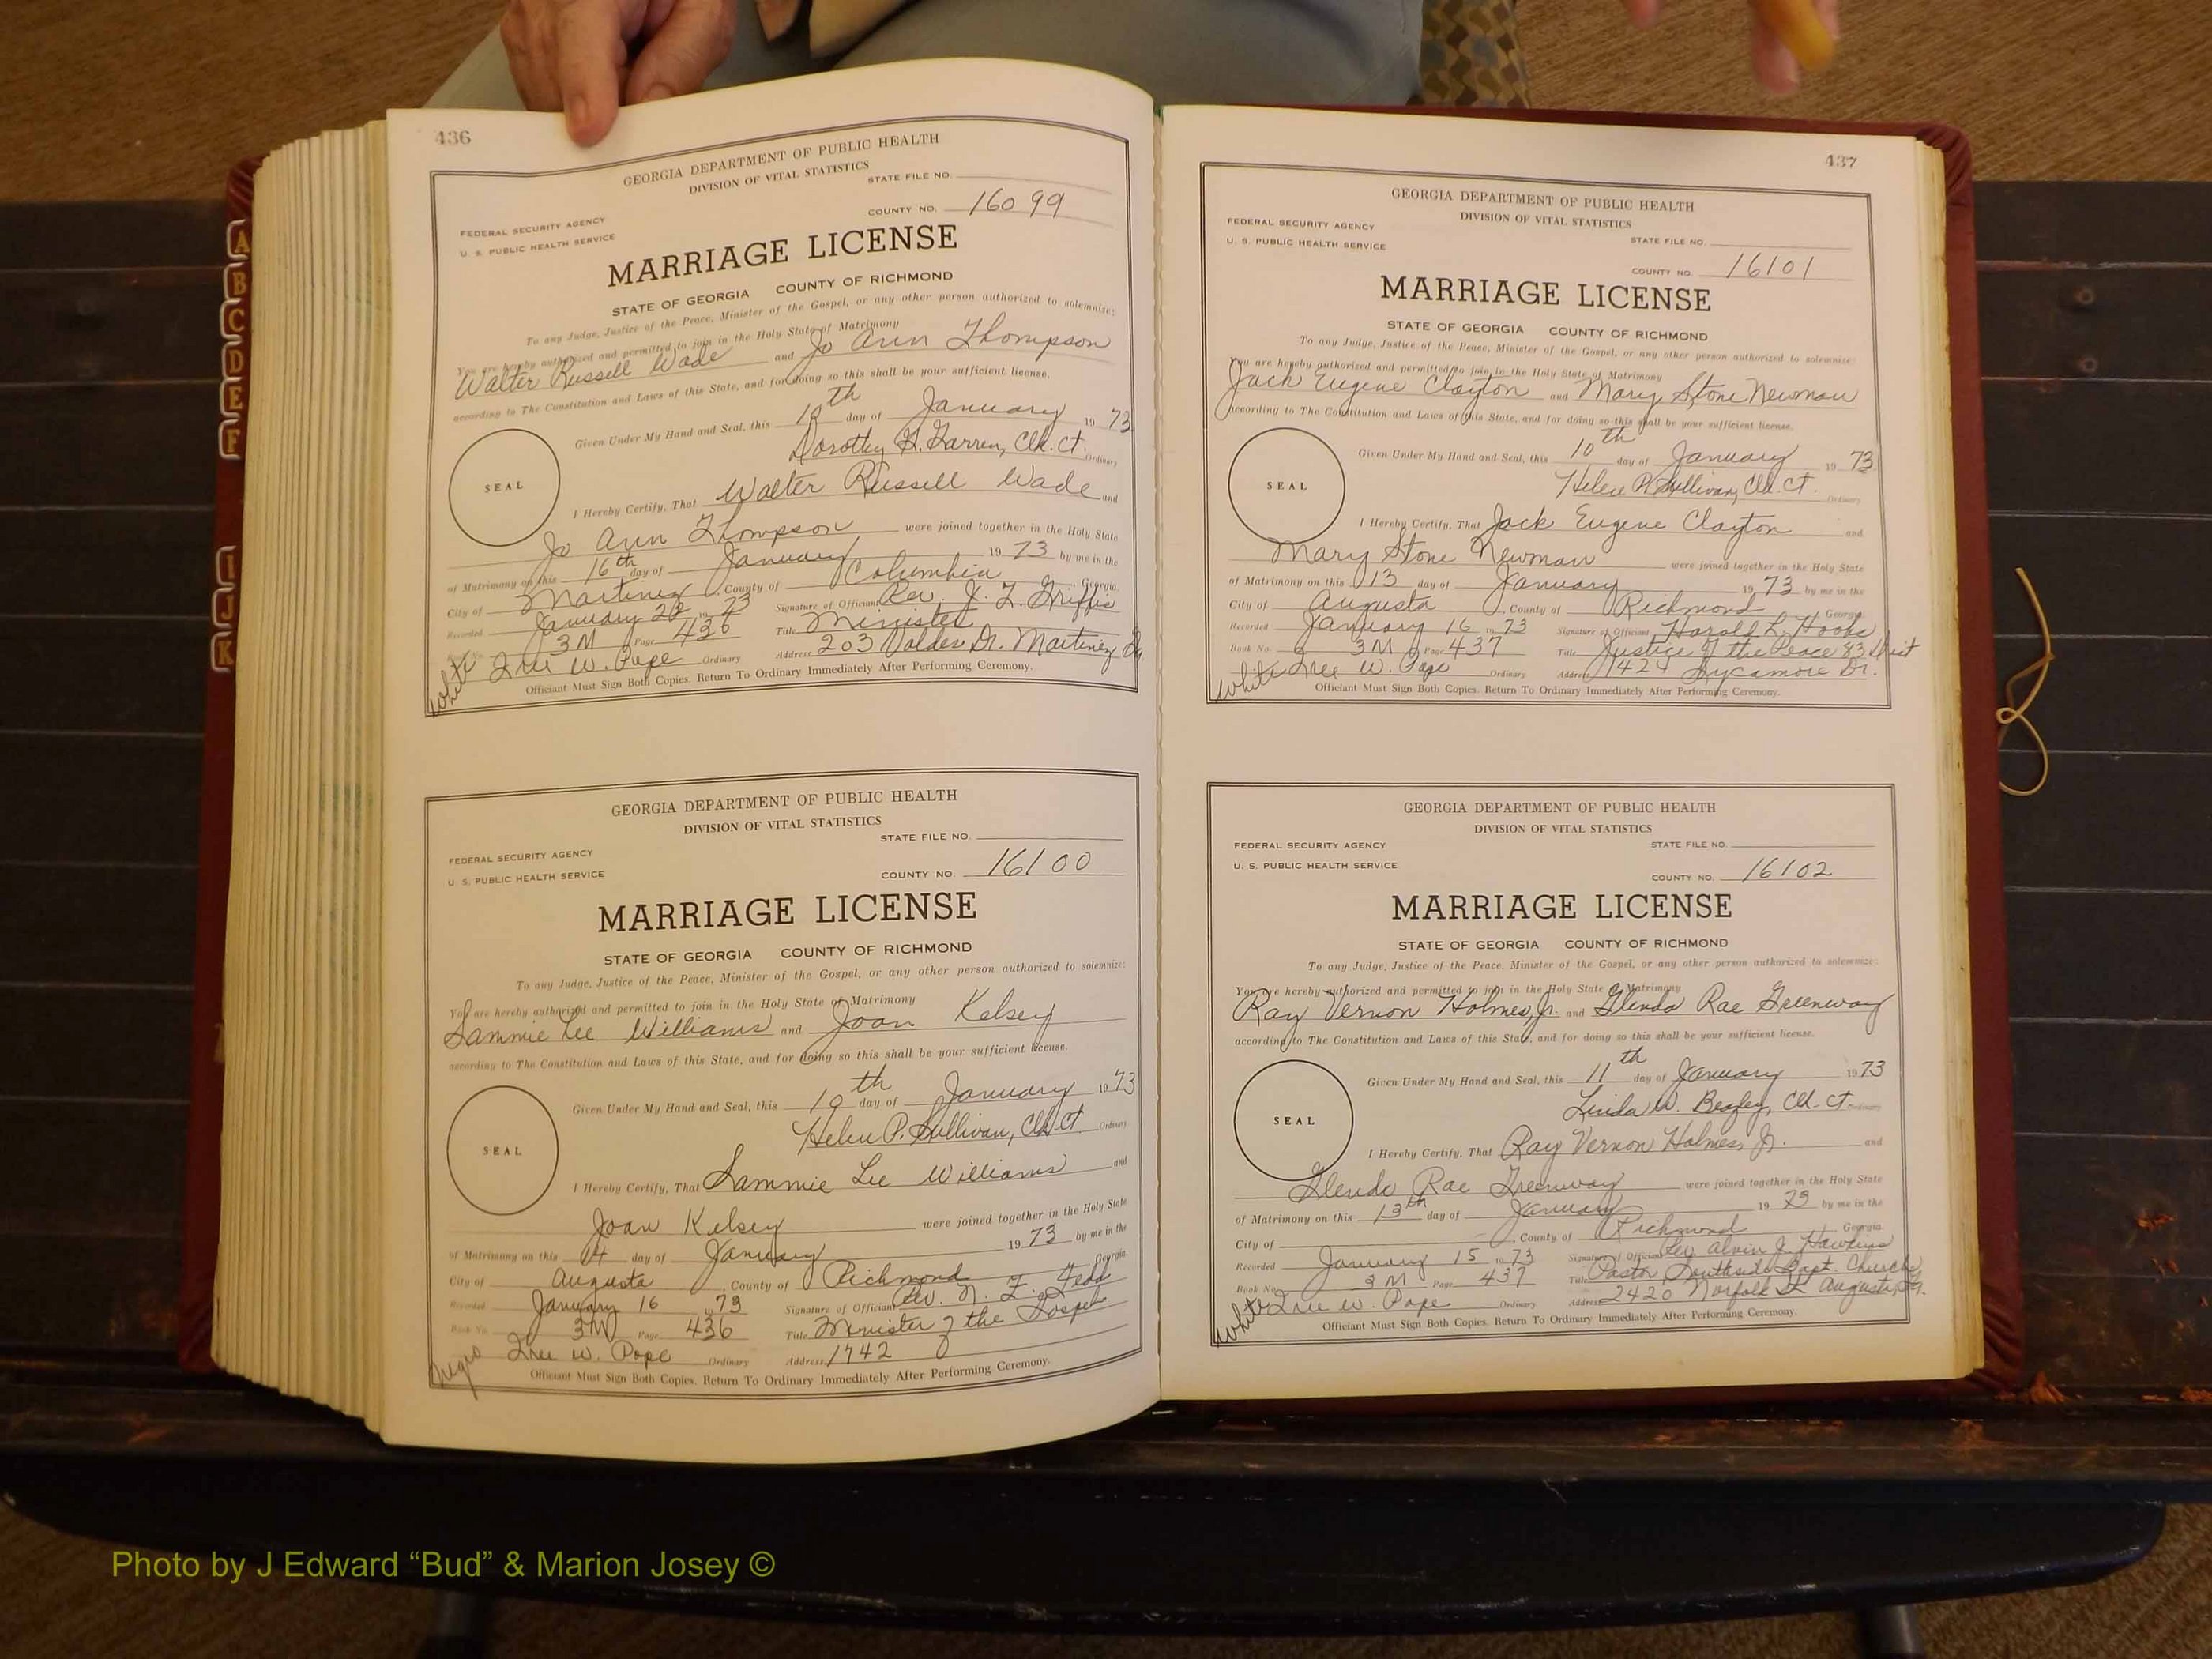 436
GEORGIA DEPARTMENT OF PUBLIC HEALTH
DIVISION OF VITAL STATISTICS
STATE FILE NO.
COUNTY NO. 16099
FEDERAL SECURITY AGENCY
U. S. PUBLIC HEALTH SERVICE
MARRIAGE LICENSE
STATE OF GEORGIA COUNTY OF RICHMOND
To any Judge, Justice of the Peace, Minister of the Gospel, or any other person authorized to solemnize:
You are hereby authorized and permitted to join in the Holy State of Matrimony
Walter Russell Wade and Jo Ann Thompson
according to The Constitution and Laws of this State, and for doing so this shall be your sufficient license.
Given Under My Hand and Seal, this 10th day of January 19 73
Dorothy H. Farren, Clk. Ct. Ordinary
SEAL
I Hereby Certify, That Walter Russell Wade and
Jo Ann Thompson were joined together in the Holy State
of Matrimony on this 16th day of January 19 73 by me in the
City of Martinez, County of Columbia, Georgia.
Recorded January 19 73 Signature of Official Rev. J. L. Griffis
Book No. 3M Page 436 Title Minister
Iree W. Pope Ordinary Address 203 Valdes Dr. Martinez Ga
White
Officiant Must Sign Both Copies. Return To Ordinary Immediately After Performing Ceremony.
GEORGIA DEPARTMENT OF PUBLIC HEALTH
DIVISION OF VITAL STATISTICS
STATE FILE NO.
FEDERAL SECURITY AGENCY
U. S. PUBLIC HEALTH SERVICE
COUNTY NO. 16100
MARRIAGE LICENSE
STATE OF GEORGIA COUNTY OF RICHMOND
To any Judge, Justice of the Peace, Minister of the Gospel, or any other person authorized to solemnize:
You are hereby authorized and permitted to join in the Holy State of Matrimony
Sammie Lee Williams and Joan Kelsey
according to The Constitution and Laws of this State, and for doing so this shall be your sufficient license.
Given Under My Hand and Seal, this 10th day of January 19 73
Helen P. Sullivan, Clk. Ct Ordinary
SEAL
I Hereby Certify, That Sammie Lee Williams and
Joan Kelsey were joined together in the Holy State
of Matrimony on this 14 day of January 19 73 by me in the
City of Augusta, County of Richmond Georgia.
Recorded January 16 19 73 Signature of Official Rev. N. F. Fedd
Book No. 3M Page 436 Title Minister of the Gospel
Iree W. Pope Ordinary Address 1742
Negro
Officiant Must Sign Both Copies. Return To Ordinary Immediately After Performing Ceremony.
437
GEORGIA DEPARTMENT OF PUBLIC HEALTH
DIVISION OF VITAL STATISTICS
FEDERAL SECURITY AGENCY
U. S. PUBLIC HEALTH SERVICE
STATE FILE NO.
COUNTY NO. 16101
MARRIAGE LICENSE
STATE OF GEORGIA COUNTY OF RICHMOND
To any Judge, Justice of the Peace, Minister of the Gospel, or any other person authorized to solemnize:
You are hereby authorized and permitted to join in the Holy State of Matrimony
Jack Eugene Clayton and Mary Stone Newman
according to The Constitution and Laws of this State, and for doing so this shall be your sufficient license.
Given Under My Hand and Seal, this 10th day of January 19 73
Helen P. Sullivan, Clk. Ct. Ordinary
SEAL
I Hereby Certify, That Jack Eugene Clayton and
Mary Stone Newman were joined together in the Holy State
of Matrimony on this 13 day of January 19 73 by me in the
City of Augusta, County of Richmond Georgia
Recorded January 16 19 73 Signature of Official Harold L. Hooks
Book No. 3M Page 437 Title Justice of the Peace 83 Dist
Iree W. Pope Ordinary Address 1424 Sycamore Dr.
White
Officiant Must Sign Both Copies. Return To Ordinary Immediately After Performing Ceremony.
GEORGIA DEPARTMENT OF PUBLIC HEALTH
DIVISION OF VITAL STATISTICS
FEDERAL SECURITY AGENCY
U. S. PUBLIC HEALTH SERVICE
STATE FILE NO.
COUNTY NO. 16102
MARRIAGE LICENSE
STATE OF GEORGIA COUNTY OF RICHMOND
To any Judge, Justice of the Peace, Minister of the Gospel, or any other person authorized to solemnize:
You are hereby authorized and permitted to join in the Holy State of Matrimony
Ray Vernon Holmes, Jr. and Glenda Rae Greenway
according to The Constitution and Laws of this State, and for doing so this shall be your sufficient license.
Given Under My Hand and Seal, this 11th day of January 19 73
Linda W. Beazley, Clk. Ct. Ordinary
SEAL
I Hereby Certify, That Ray Vernon Holmes, Jr. and
Glenda Rae Greenway were joined together in the Holy State
of Matrimony on this 13th day of January 19 73 by me in the
City of , County of Richmond Georgia.
Recorded January 15 19 73 Signature of Official Rev. Alvin J. Hawkins
Book No. 3M Page 437 Title Pastor, Southside Bapt. Church
Iree W. Pope Ordinary Address 2420 Norfolk St Augusta, Ga.
White
Officiant Must Sign Both Copies. Return To Ordinary Immediately After Performing Ceremony.
A
B
C
D
E
F
I
J
K
Photo by J Edward “Bud” & Marion Josey ©